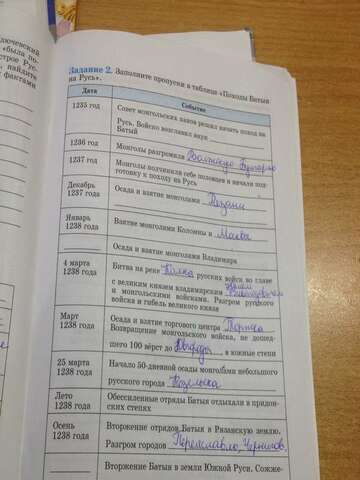 лючевский
«была по-
строе Рус-
найдите
фактами
Задание 2. Заполните пропуски в таблице «Походы Батыя
на Русь».
Дата
Событие
1235 год
Совет монгольских ханов решил начать поход на
Русь. Войско возглавил внук
Батый
1236 год
Монголы разгромили Волжскую Булгарию
1237 год
Монголы подчинили себе половцев и начали под-
готовку к походу на Русь
Декабрь
1237 года
Осада и взятие монголами Рязани
Январь
1238 года
Взятие монголами Коломны и Москвы
Осада и взятие монголами Владимира
4 марта
1238 года
Битва на реке русских войск во главе
с великим князем владимирским
и монгольскими войсками. Разгром русского
войска и гибель великого князя
Март
1238 года
Осада и взятие торгового центра Торжка
Возвращение монгольского войска, не дошед-
шего 100 вёрст до в южные степи
25 марта
1238 года
Начало 50-дневной осады монголами небольшого
русского города Козельска
Лето
1238 года
Обессиленные отряды Батыя отдыхали в придон-
ских степях
Осень
1238 года
Вторжение отрядов Батыя в Рязанскую землю.
Разгром городов Чернигов.
Вторжение Батыя в земли Южной Руси. Сожже-